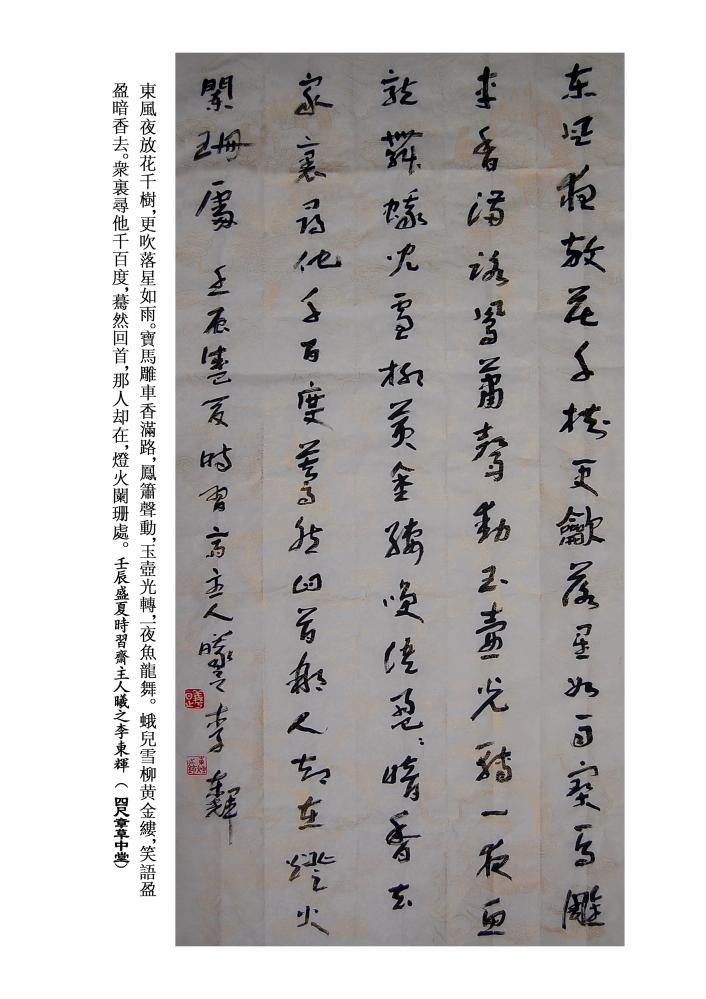 东风夜放花千树更歙落星如雨宝马雕
车香满路凤萧声动玉壶光转一夜鱼
龙舞蛾儿雪柳黄金缕笑语盈〻暗香去
家裏寻他千百度蓦然回首那人却在灯火
阑珊处 壬辰盛夏时习斋主人曦之李东辉
東風夜放花千樹,更吹落星如雨。寶馬雕車香滿路,鳳簫聲動,玉壺光轉,一夜魚龍舞。蛾兒雪柳黄金縷,笑語盈
盈暗香去。衆裏尋他千百度,驀然回首,那人却在,燈火闌珊處。壬辰盛夏時習齋主人曦之李東輝(四尺章草中堂)